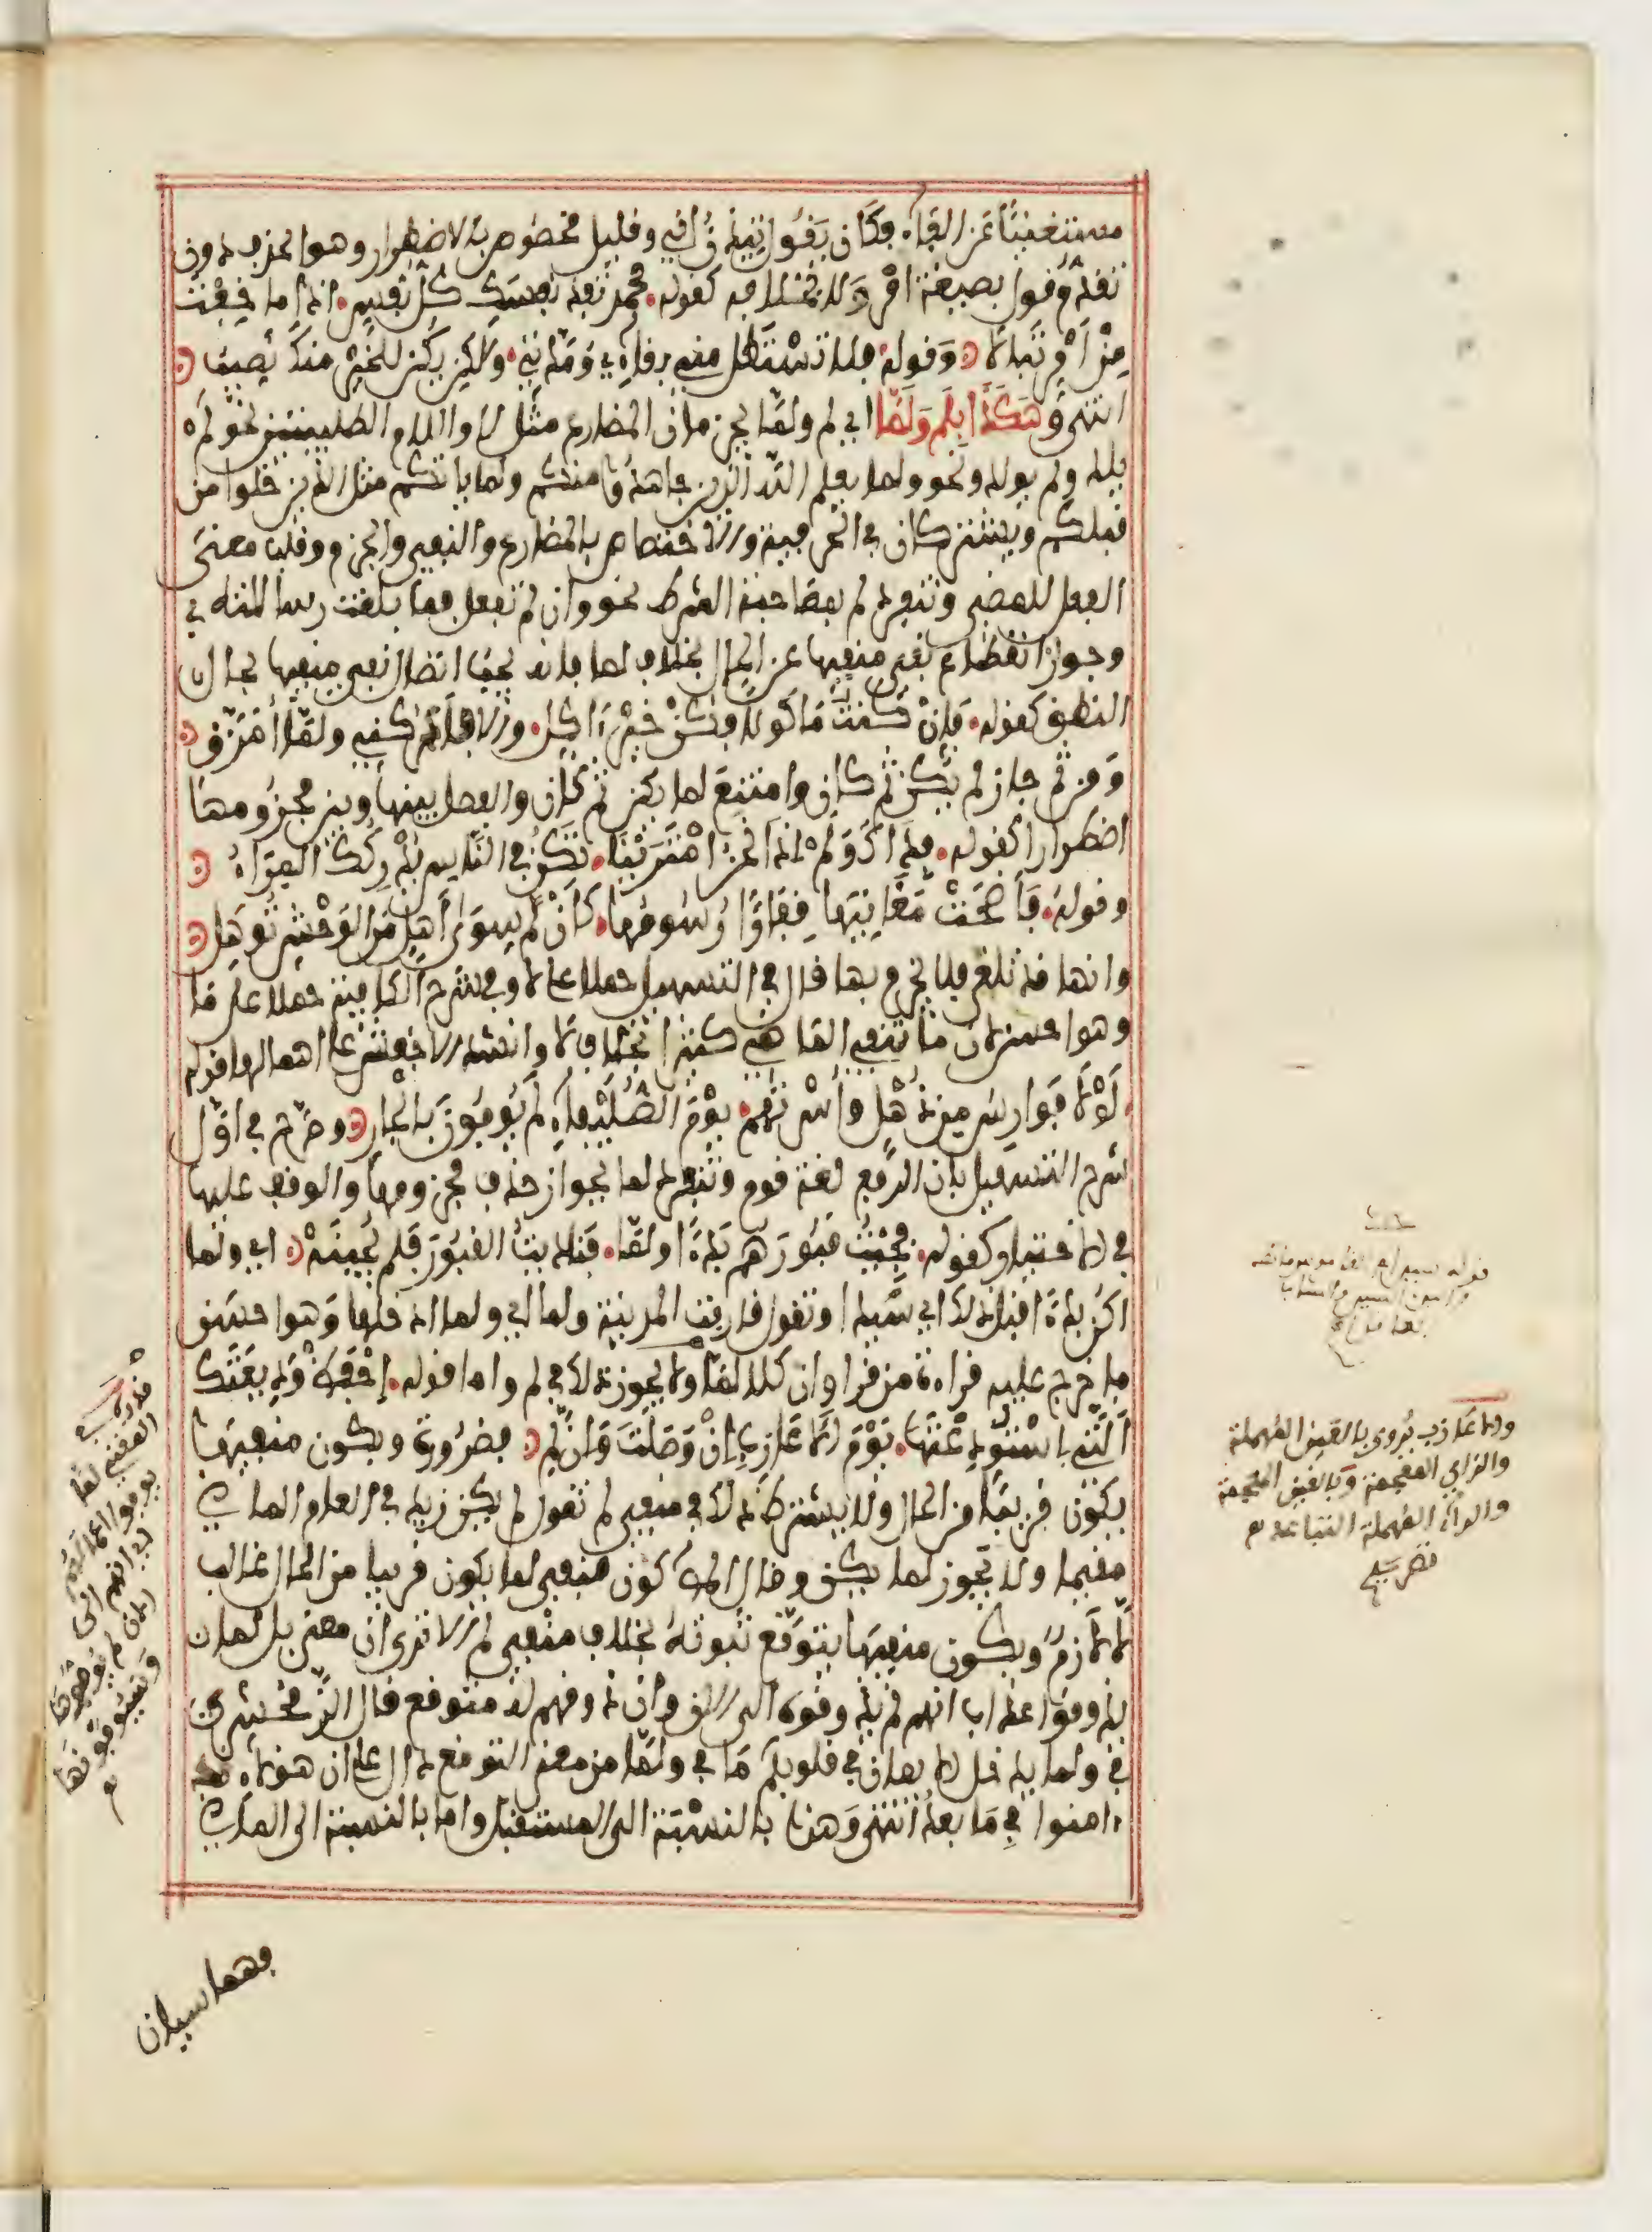 مستغنيا عن الفاء فكان يقول ايتيذن لي وقليل مخصوص بالاضطرار وهو الحذف دون
تقدم قول بصيغة امر ولا بخلافه كقوله محمد تفد نفسك كل نفس اذا ما خفت
من امر تبالا وقوله فلا تستطل مني بقاءي ومدتي ولاكن يكن للخير منك نصيب
انتهى وهكذا بلم ولما اي لم ولما يجزمان المضارع مثل لا واللام الطلبيتين نحو لم
يلد ولم يولد ونحو ولما يعلم الله الذين جاهدوا منكم ولما ياتكم مثل الذين خلوا من
قبلكم ويشتركان في الحرفية والاختصاص بالمضارع والنفي والجزم وقلب معنى
الفعل للمضي وتنفرد لم بمصاحبة الشرط نحو وان لم تفعل فما بلغت رسالته في
وجواز انقطاع نفي منفيها عن الحال بخلاف لما فانه يجب اتصال نفي منفيها بحال
النطق كقوله فإن كنت ماكولا فكن خير ءاكل والا فادركني ولما امزق
ومن ثم جاز لم يكن ثم كان وامتنع لما يكن ثم كان والفصل بينها وبين مجزومها
اضطرارا كقوله فذاك ولم اذا نحن امترينا تكن في الناس يدركك المراء
وقوله فاضحت مغانيها قفارا رسومها كأن لم سوى أهل من الوحش توهل
وانها قد تلغى فلا يجزم بها قال في التسهيل حملا على لا وفي شرح الكافية حملا على ما
وهو احسن لان ما تنفي الماضي كثيرا بخلاف لا وانشد الاخفش على اهمالها قوله
لولا فوارس من ذهل وأسرتهم يوم الصليفاء لم يوفون بالجار وصرح في اول
شرح التسهيل بان الرفع لغة قوم وتنفرد لما بجواز حذف مجزومها والوقف عليها
في الاختيار كقوله فجئت قبورهم بدءا ولما فناديت القبور فلم يجبنه اي ولما
اكن بدءا قبل ذلك اي سيدا وتقول قاربت المدينة ولما اي ولما ادخلها وهو احسن
ما خرج عليه قراءة من قرا وان كلا لما ولا يجوز ذلك في لم واما قوله احفظ وديعتك
التي استودعتها يوم الاعازب إن وصلت وان لم فضرورة ويكون منفيها
يكون قريبا من الحال ولا يشترط ذلك في منفي لم تقول لم يكن زيد في العام الماضي
مقيما ولا يجوز لما يكن وقال المص كون منفي لما يكون قريبا من الحال غالب
لا لازم ويكون منفيها يتوقع ثبوته بخلاف منفي لم الا ترى ان معنى بل لما
يذوقوا عذاب انهم لم يذوقوه الى الان وان ذوقهم له متوقع قال الزمخشري
في ولما يدخل الايمان في قلوبكم ما في ولما من معنى التوقع دال على ان هؤلاء قد
ءامنوا في ما بعد انتهى وهذا بالنسبة الى المستقبل واما بالنسبة الى الماضي
فهما سيان
والاعازب يروى بالعين المهملة
والزاي المعجمة وبالغين المعجمة
والراء المهملة التباعد